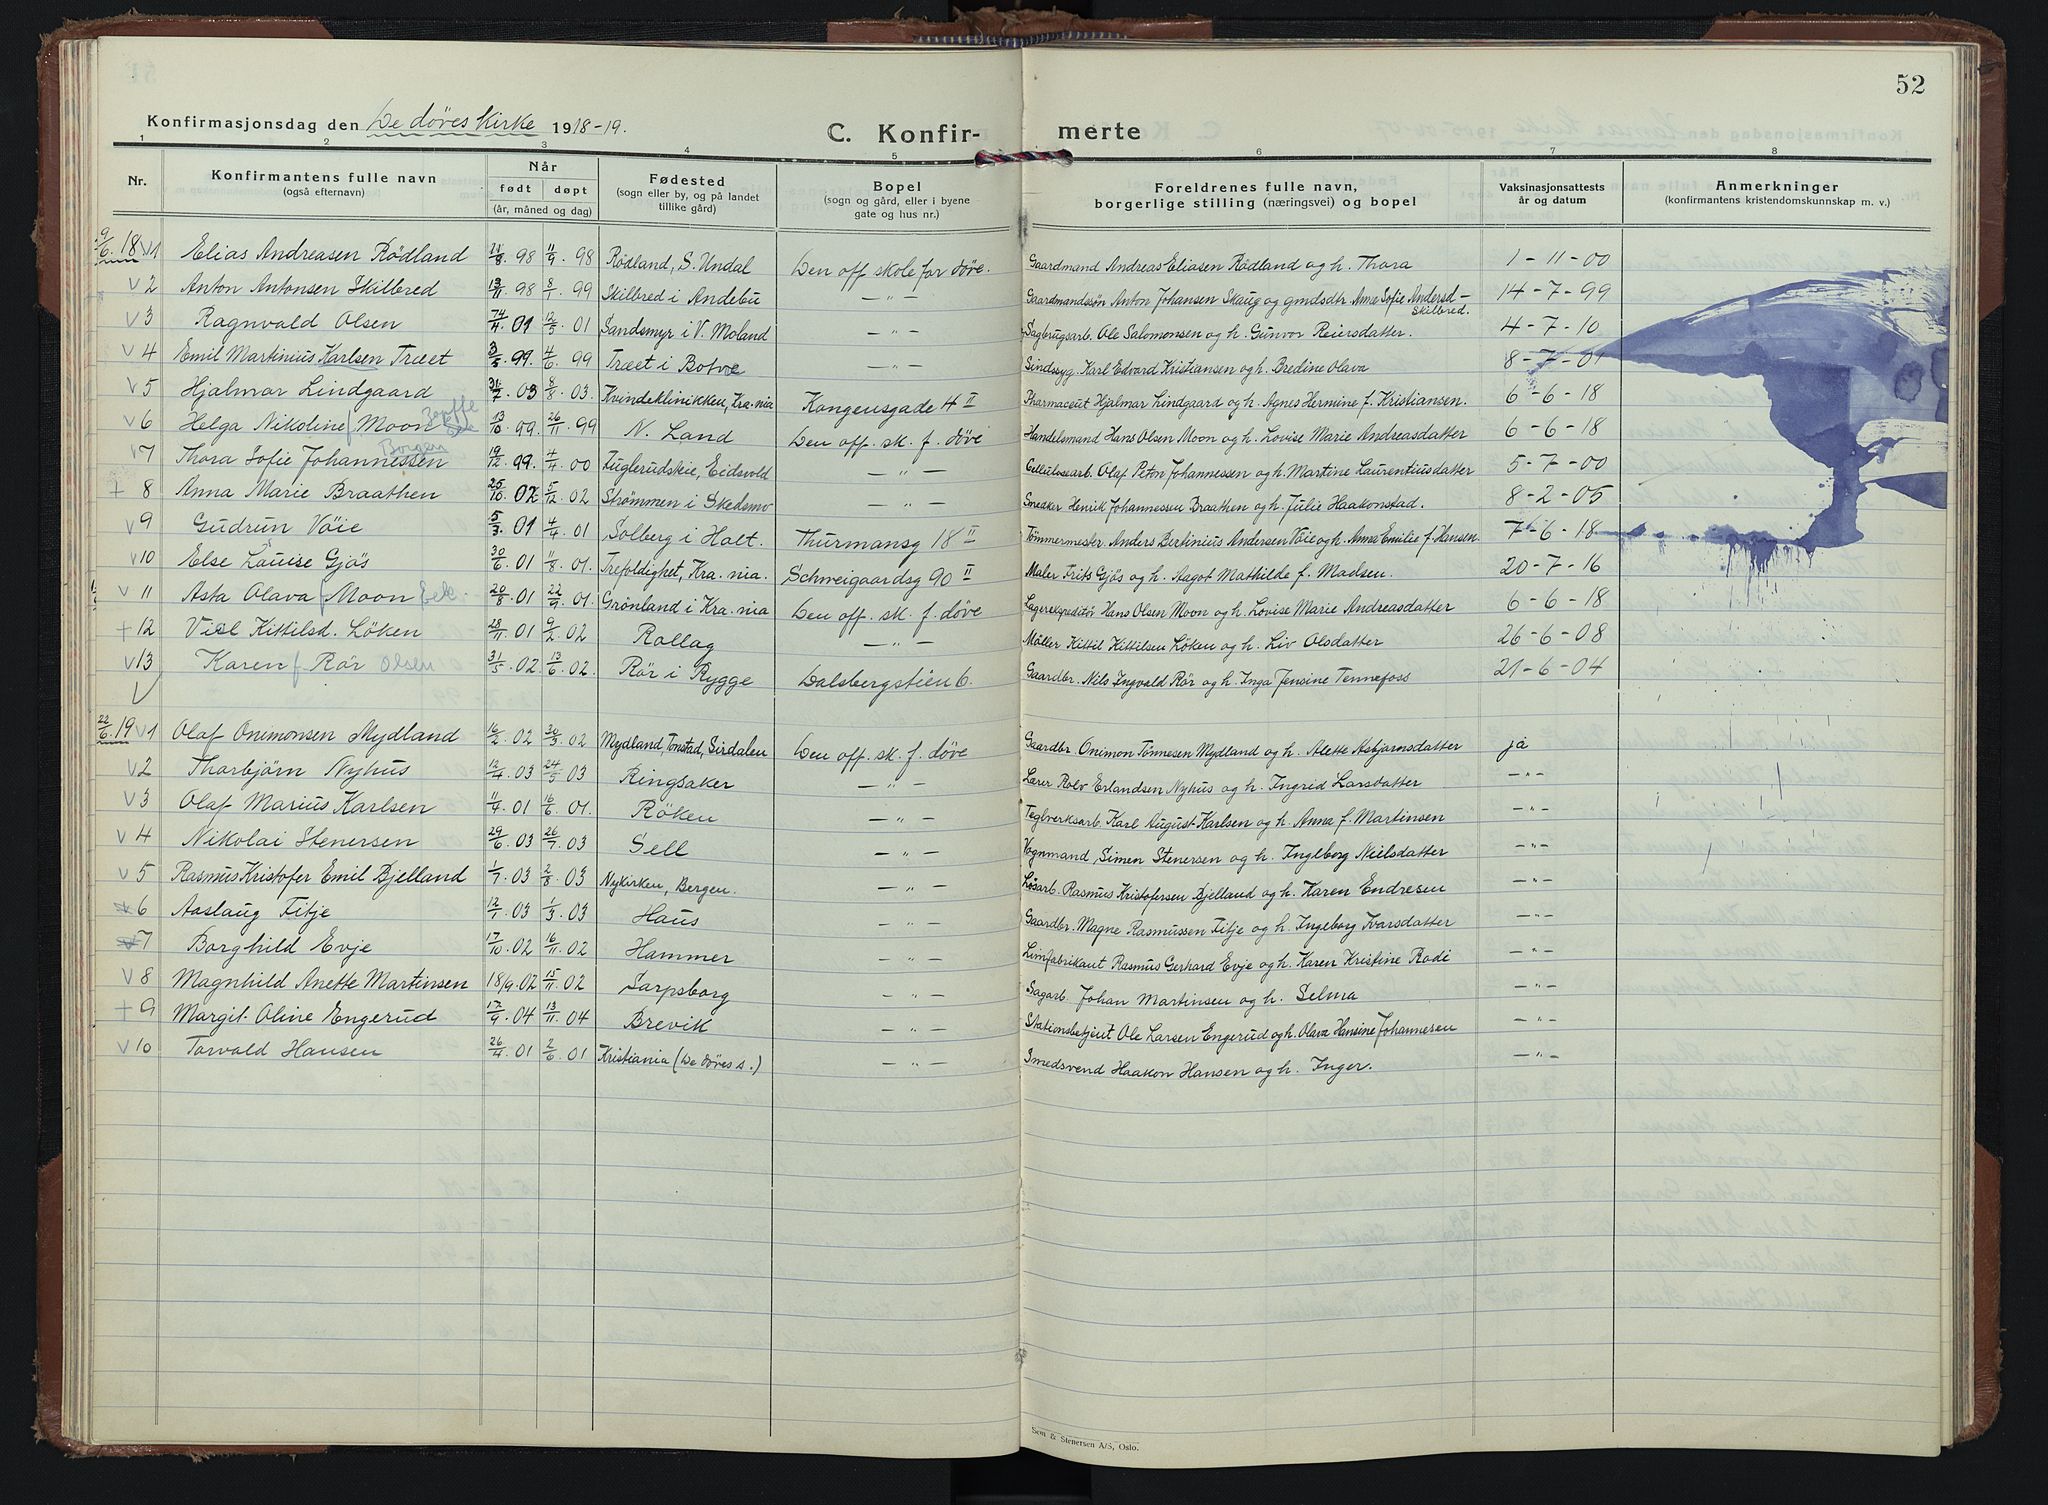 52
Konfirmasjonsdag den De døves kirke 1918-19. C. Konfir- merte
1 2 3 4 5 6 7 8
Nr. Konfirmantens fulle navn (også efternavn) Når født døpt (år, måned og dag) Fødested (sogn eller by, og på landet tillike gård) Bopel (sogn og gård, eller i byene gate og hus nr.) Foreldrenes fulle navn, borgerlige stilling (næringsvei) og bopel Vaksinasjonsattests år og datum Anmerkninger (konfirmantens kristendomskunnskap m. v.)
9/6.18 v1 Elias Andreasen Rødland 21/8.98 11/9.98 Rødland, S. Undal Den off. skole for døve. Gaardmand Andreas Eliasen Rødland og h. Thora 1-11-00
v2 Anton Antonsen Skilbred 13/11.98 8/1.99 Skilbred i Andebu —"— Gaardmandssøn Anton Johansen Skaug og gmdsdtr Anne Sofie Andersd-Skilbred. 14-7-99
v3 Ragnvald Olsen 24/4.01 12/5.01 Sandsmyr i V. Moland —"— Sagbrugsarb. Ole Salomonsen og h. Gunvor Reiersdatter. 4-7-10
v4 Emil Martinius Karlsen Træet 3/5.99 4/6.99 Træet i Botne —"— Sindssyg. Karl Edvard Kristiansen og h. Bredine Olava 8-7-01
v5 Hjalmar Lindgaard 31/7.03 8/8.03 Kvindeklinikken, Kra.nia Kongensgade 4 II Pharmaceut Hjalmar Lindgaard og h. Agnes Hermine f. Kristiansen. 6-6-18
v6 Helga Nikoline f Moon 13/10.99 26/11.99 N. Land Den off. sk. f. døve Handelsmand Hans Olsen Moon og h. Lovise Marie Andreasdatter 6-6-18
v7 Thora Sofie Johannessen Borgen 19/12.99 4/4.00 Fuglerudskie, Eidsvold —"— Cellulosearb. Olaf Peton Johannessen og h. Martine Laurentiusdatter 5-7-00
+ 8 Anna Marie Braathen 25/10.02 5/12.02 Strømmen i Skedsmo —"— Snekker Henrik Johannessen Braathen og h. Julie Haakonstad. 8-2-05
v9 Gudrun Vøie 5/3.01 4/4.01 Solberg i Holt. Thurmansg 18 II Tømmermester. Anders Bertinius Andersen Vøie og h. Anna Emilie f. Hansen. 7-6-18
v10 Else Louise Gjøs 30/6.01 11/8.01. Trefoldighet, Kra.nia. Schweigaardsg 90 II Maler Frits Gjøs og h. Aagot Mathilde f. Madsen. 20-7-16
v11 Asta Olava f Moon Eek. 20/8.01 22/9.01. Grønland i Kra.nia Den off. sk. f. døve Lagerexpeditør Hans Olsen Moon og h. Lovise Marie Andreasdatter 6-6-18
+12 Viel Kittilsd. Løken 28/11.01 9/2.02 Rollag —"— Møller Kittil Kittilsen Løken og h. Liv Olsdatter 26-6-08
v13 Karen f Rör Olsen 31/5.02 13/6.02 Rör i Rygge Dalsbergstien 6. Gaardbr. Nils Ingvald Rör og h. Inga Jensine Tennefoss 21-6-04
22/6.19 v1 Olaf Onimonsen Mydland 16/2.02 30/3.02 Mydland, Tonstad, Sirdalen Den off. sk. f. døve Gaardbr. Onimon Tønnesen Mydland og h. Alette Asbjørnsdatter ja
v2 Thorbjørn Nyhus 12/4.03 24/5.03 Ringsaker —"— Lærer Rolv Erlandsen Nyhus og h. Ingrid Larsdatter —"—
v3 Olaf Marius Karlsen 11/4.01 16/6.01. Röken —"— Teglverksarb. Karl August Karlsen og h. Anna f. Martinsen —"—
v4 Nikolai Stenersen 29/6.03 26/7.03 Sell —"— Vognmand, Simen Stenersen og h. Ingeborg Nielsdatter —"—
v5 Rasmus Kristofer Emil Bjelland 1/7.03 2/8.03 Nykirken, Bergen. —"— Løsarb. Rasmus Kristofersen Bjelland og h. Karen Endresen —"—
6 Aaslaug Fitje 12/1.03 1/3.03 Haus —"— Gaardbr. Magne Rasmussen Fitje og h. Ingeborg Ivarsdatter —"—
7 Borghild Evje 17/10.02 16/11.02 Hammer —"— Limfabrikant Rasmus Gerhard Evje og h. Karen Kristine Rodi —"—
v8 Magnhild Anette Martinsen 18/9.02 15/11.02 Sarpsborg —"— Sagarb. Johan Martinsen og h. Selma —"—
+9 Margit Oline Engerud 17/9.04 13/11.04 Brevik —"— Stationsbetjent Ole Larsen Engerud og h. Olava Hansine Johannesen —"—
v10 Torvald Hansen 26/4.01 2/6.01 Kristiania (De døves s.) —"— Smedsvend Haakon Hansen og h. Inger. —"—
Sem & Stenersen A/S, Oslo.